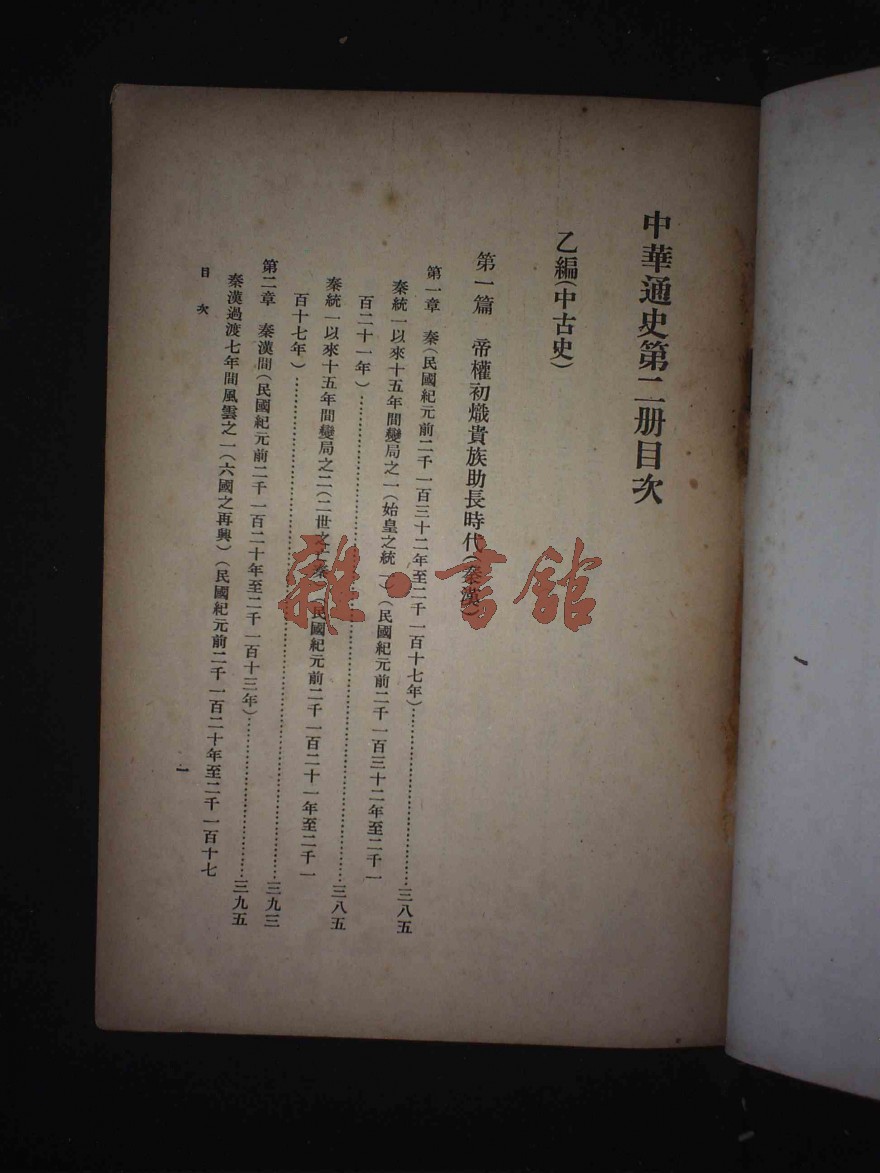 中華通史第二册目次
乙編(中古史)
第一篇　帝權初熾貴族助長時代(秦漢)
第一章　秦(民國紀元前二千一百三十二年至二千一百十七年)……三八五
秦統一以來十五年間變局之一(始皇之統一)(民國紀元前二千一百三十二年至二千一
百二十一年)……三八五
秦統一以來十五年間變局之二(二世之亡秦)(民國紀元前二千一百二十一年至二千一
百十七年)……三九三
第二章　秦漢間(民國紀元前二千一百二十年至二千一百十三年)……三九五
秦漢過渡七年間風雲之一(六國之再興)(民國紀元前二千一百二十年至二千一百十七
目次
一
雜·書館